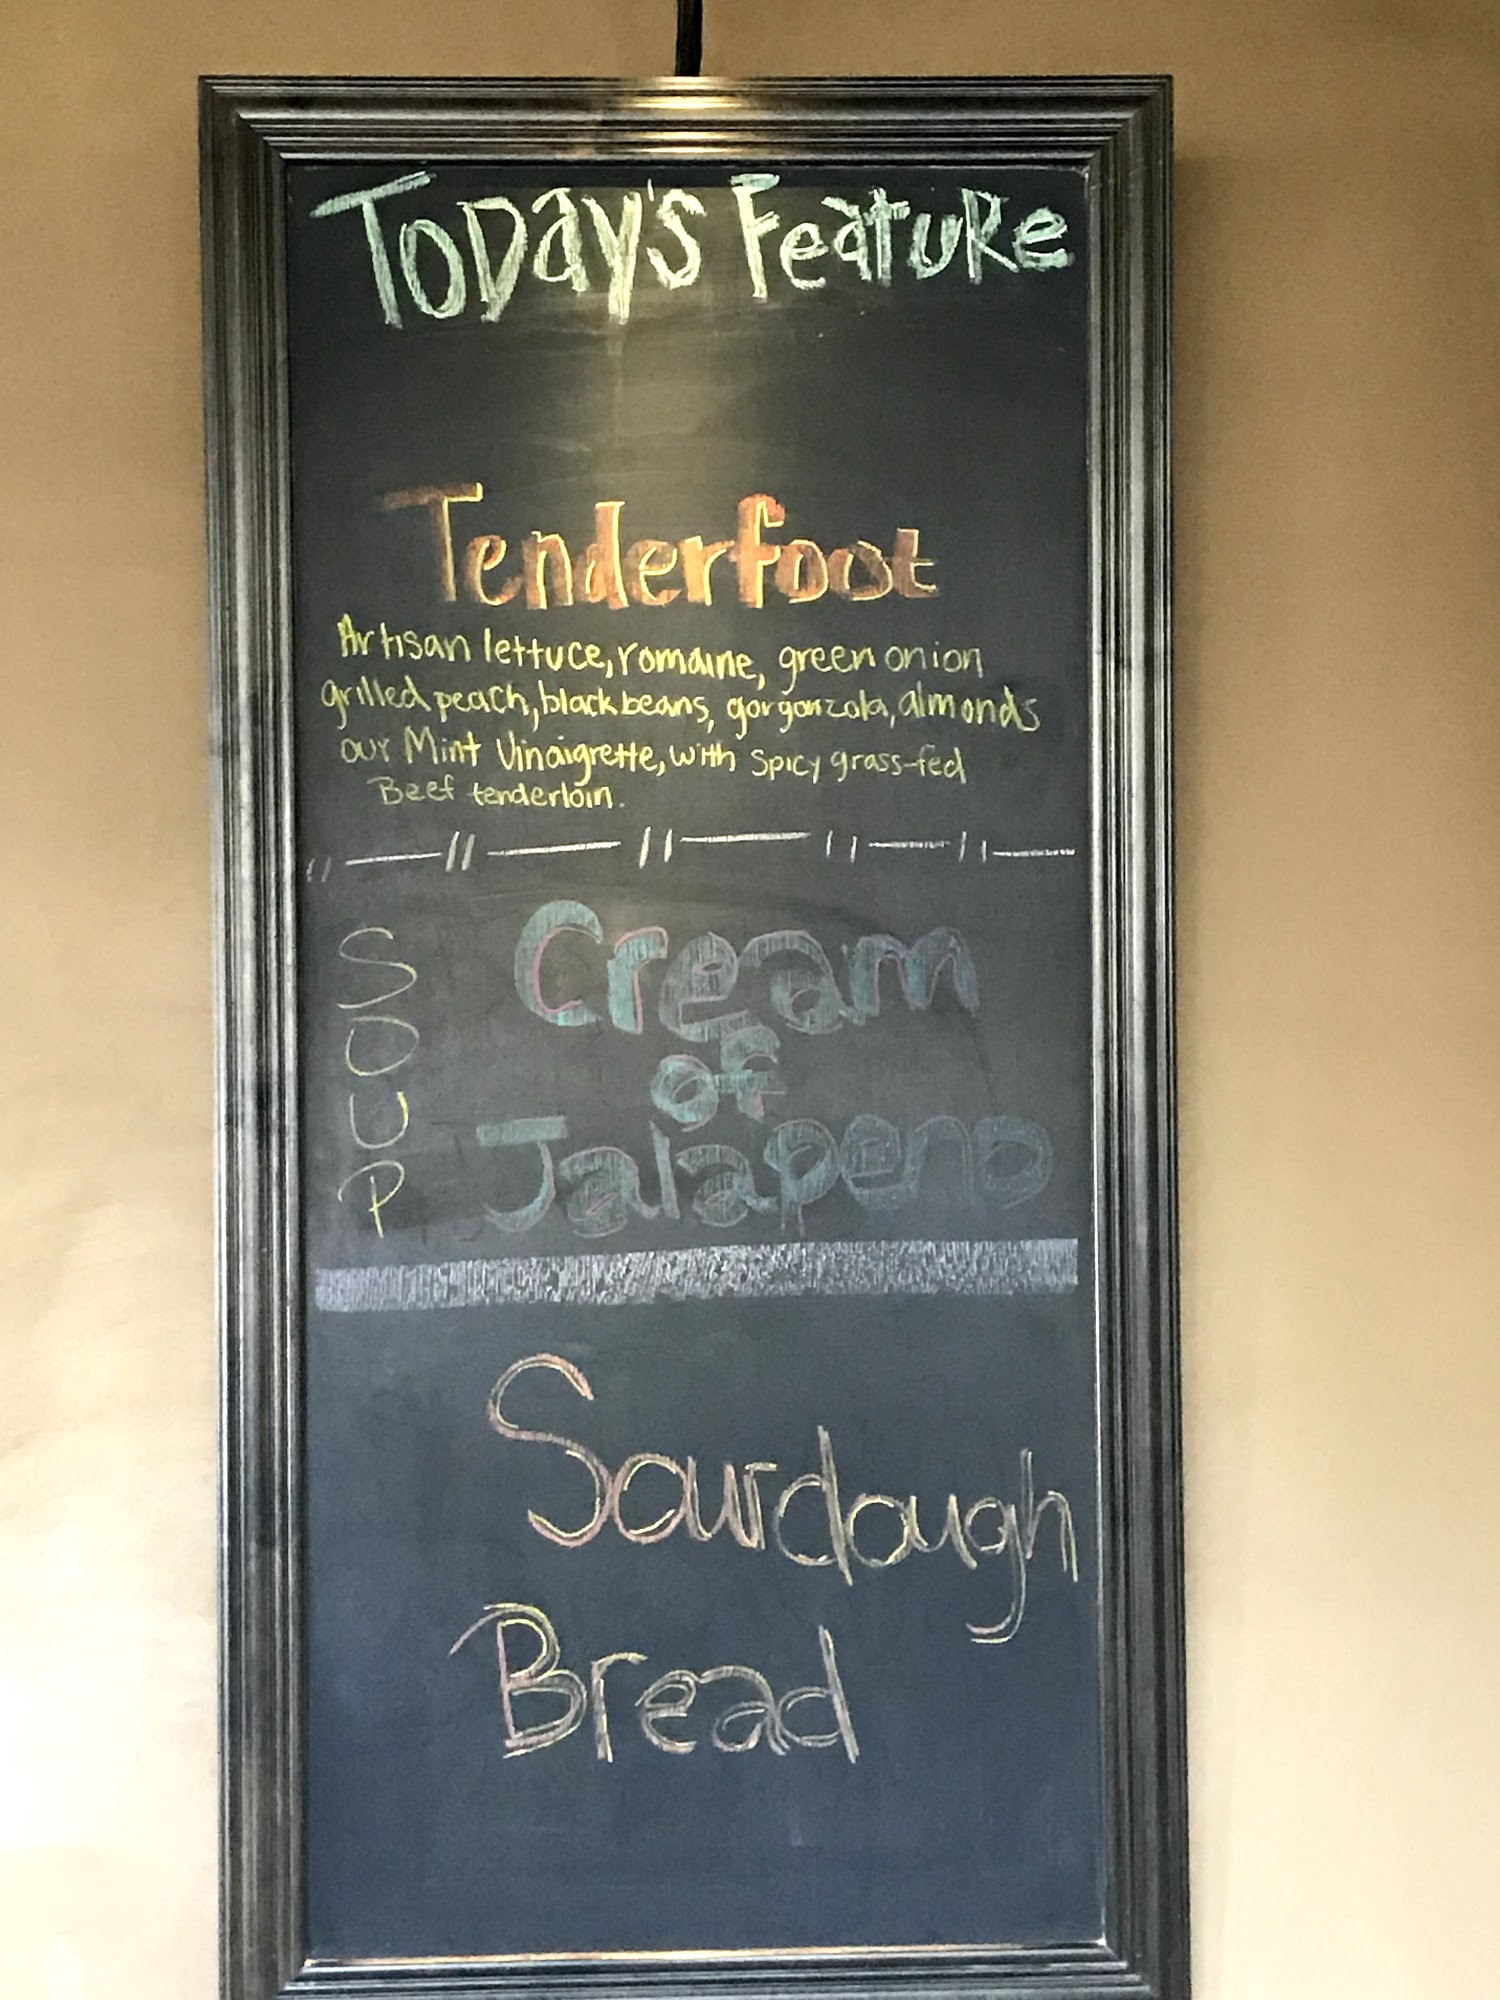 Today's Feature
Tenderfoot
Artisan lettuce, romaine, green onion
grilled peach, black beans, gorgonzola, almonds
our Mint Vinaigrette, with spicy grass-fed
Beef tenderloin.
SOUP
Cream
of
Jalapeno
Sourdough
Bread